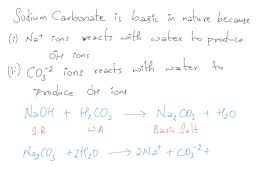 Sodium Carbonate is basic in nature because
(i) Na⁺ ions reacts with water to produce
OH ions
(ii) CO₃⁻² ions reacts with water to
produce OH ions
NaOH + H₂CO₃ → Na₂CO₃ + H₂O
S.B W.A Basic Salt
Na₂CO₃ + 2H₂O → 2Na⁺ + CO₃⁻² +